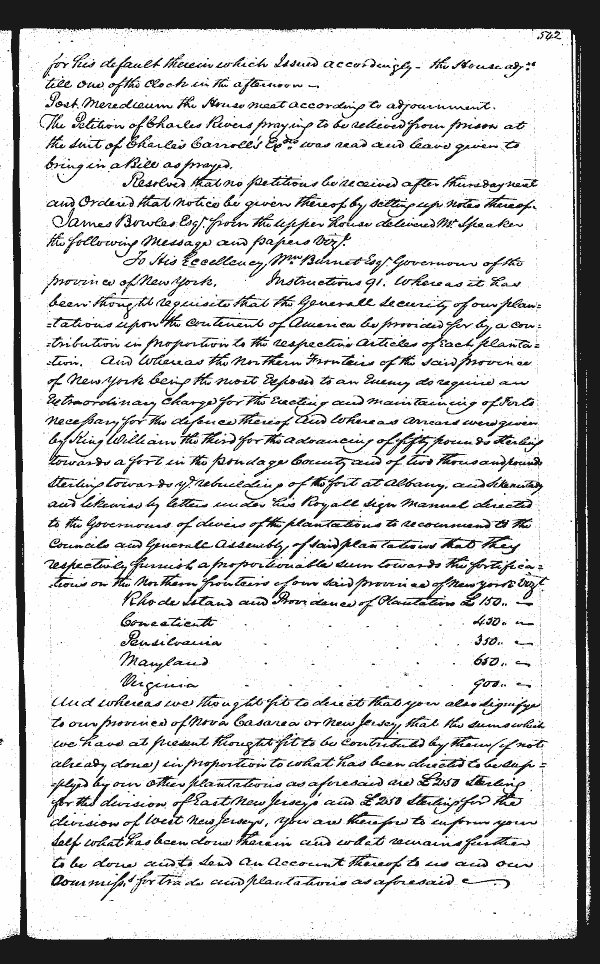 542
for his default therein which Issued accordingly - the House adj.ns
till one of the Clock in the afternoon -
Post Meredieum the House meat according to adjournment.
The Petition of Charles Rivers praying to be relieved from prison at
the suit of Charles Carroll's Esq.rs was read and leave given to
bring in a Bill as prayed.
Resolved that no petitions be received after thursday next
and Ordered that notice be given thereof by setting up notes thereof.
James Bowles Esq.r from the upper house delivered Mr Speaker
the following Message and papers Vizt.
To His Eccellency Wm Burnet Esq.r Governour of the
province of New York. Instructions 91. Whereas it has
been thought requisite that the Generall security of our plan=
=tations upon the continent of America be provided for by a con=
=tribution in proportion to the respective Articles of Each planta=
=tion. And Whereas the Northern Frontiers of the said province
of New York being the most Exposed to an Enemy do require an
Extraordinary Charge for the Erecting and maintaining of Forts
necessary for the defence thereof And Whereas arrears were given
by King William the third for the advancing of fifty pounds sterling
towards a fort in the Pondage County and of two thousand pounds
sterling towards ye rebuilding of the fort at Albany, and
and likewise by letters under his Royall sign Manual directed
to the Governours of divers of the plantations to recommend to the
Councils and Generall Assembly of said plantations that they
respectively furnish a proportionable sum towards the fortifica=
=tions on the Northern frontiers of our said province of New york Vizt
Rhode Island and Providence of Plantation £150.. -
Conecticutt . . . . 450.. -
Pensilvania . . . . 350.. -
Maryland . . . . 650.. -
Virginia . . . . 900.. -
And whereas we thought fit to direct that you also signifye
to our province of Nova Casarea or New Jersey, that the sums which
we have at present thought fit to be contributed by them (if not
already done) in proportion to what has been directed to be sup=
=plyed by our other plantations as aforesaid are £250 sterling
for the division of East New Jerseys and £250 Sterling for the
division of West New Jerseys, you are therefore to inform your
self what has been done therein and what remains further
to be done and to send An Account thereof to us and our
Commiss.rs for trade and plantations as aforesaid